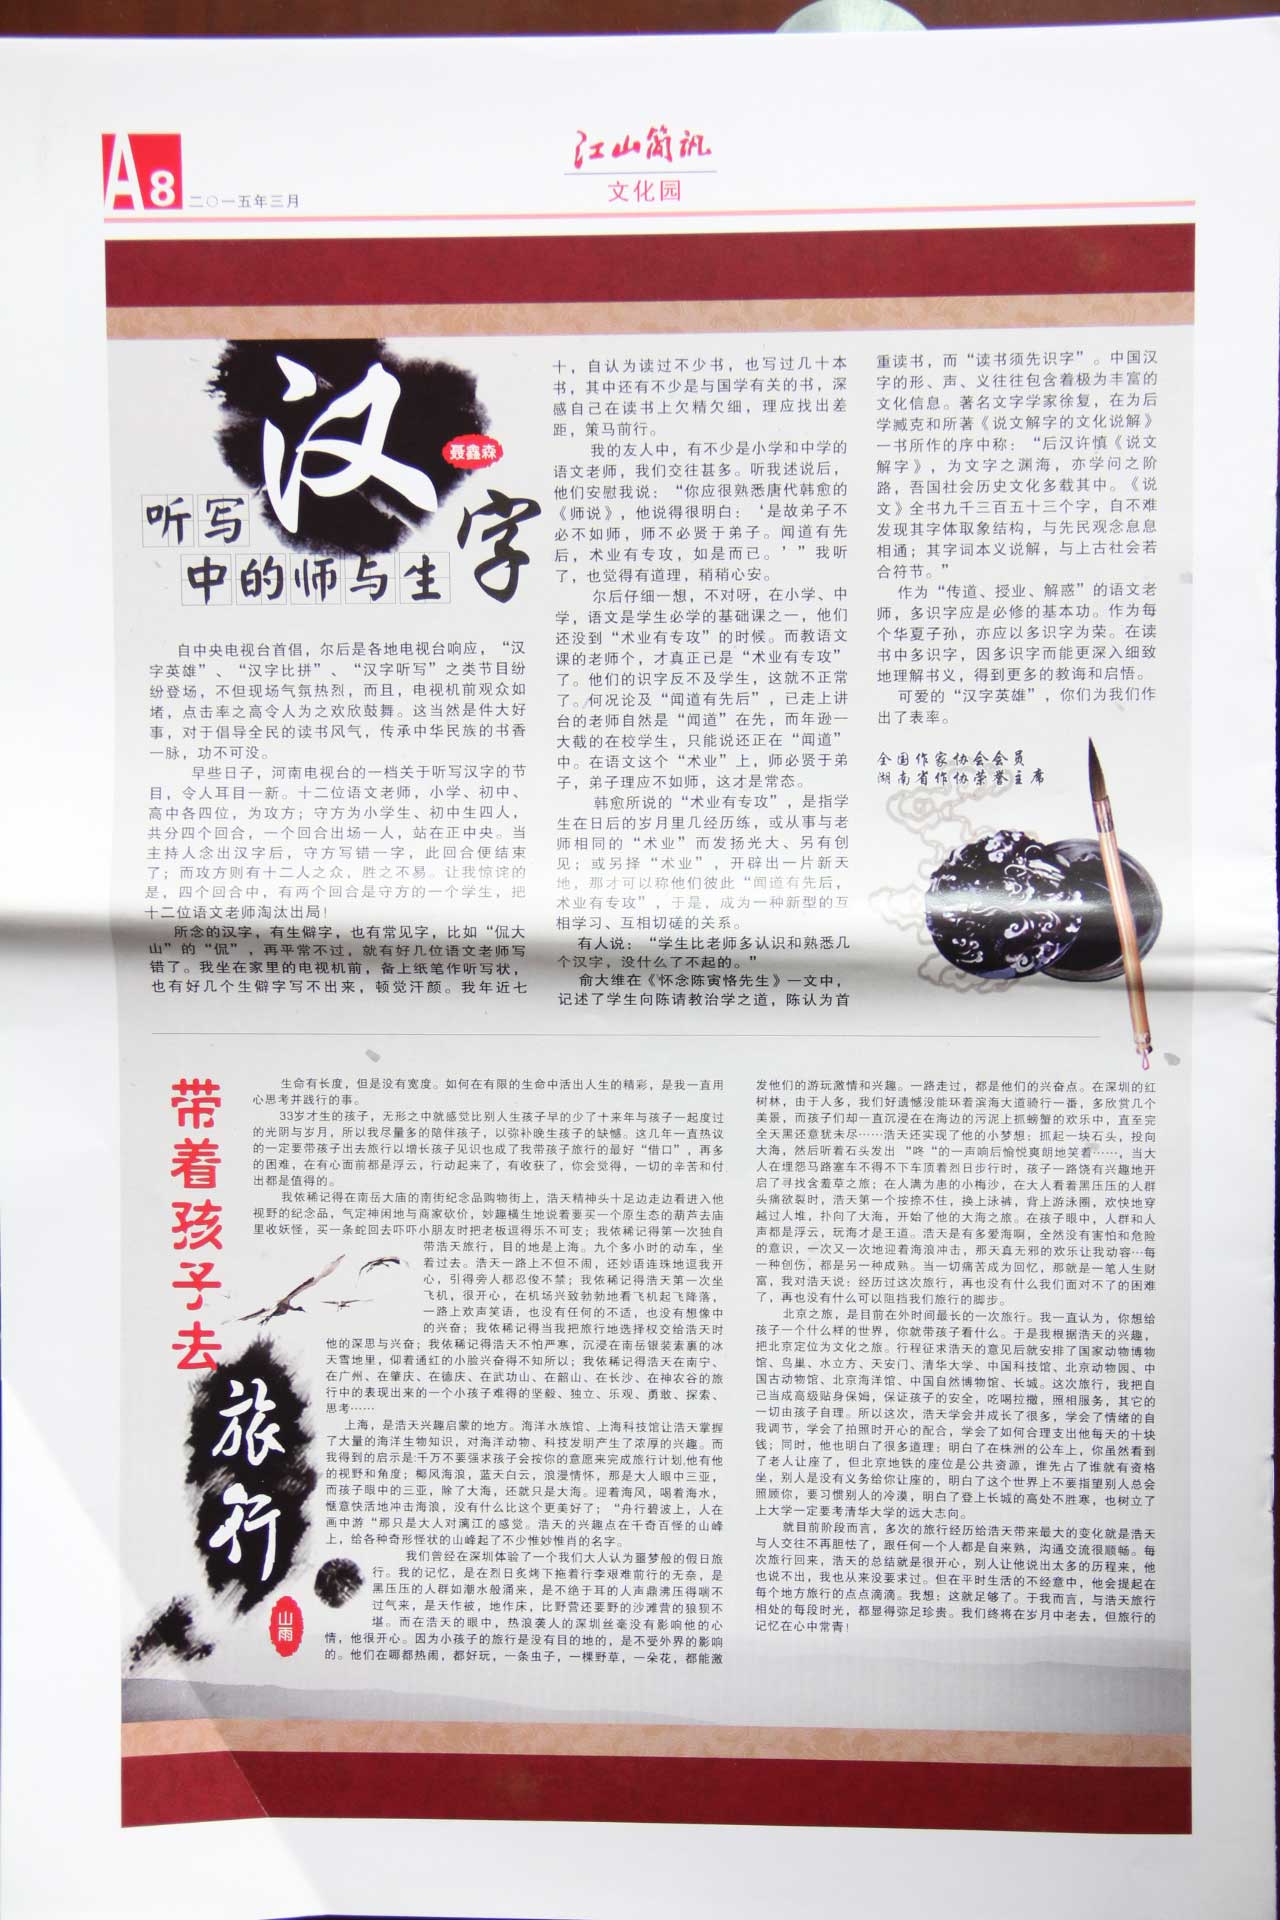 A8
二〇一五年三月
江山简讯
文化园
听写
汉
字
中的师与生
聂鑫森
自中央电视台首倡，尔后是各地电视台响应，“汉
字英雄”、“汉字比拼”、“汉字听写”之类节目纷
纷登场，不但现场气氛热烈，而且，电视机前观众如
堵，点击率之高令人为之欢欣鼓舞。这当然是件大好
事，对于倡导全民的读书风气，传承中华民族的书香
一脉，功不可没。
早些日子，河南电视台的一档关于听写汉字的节
目，令人耳目一新。十二位语文老师，小学、初中、
高中各四位，为攻方；守方为小学生、初中生四人，
共分四个回合，一个回合出场一人，站在正中央。当
主持人念出汉字后，守方写错一字，此回合便结束
了；而攻方则有十二人之众，胜之不易。让我惊诧的
是，四个回合中，有两个回合是守方的一个学生，把
十二位语文老师淘汰出局！
所念的汉字，有生僻字，也有常见字，比如“侃大
山”的“侃”，再平常不过，就有好几位语文老师写
错了。我坐在家里的电视机前，备上纸笔作听写状，
也有好几个生僻字写不出来，顿觉汗颜。我年近七
十，自认为读过不少书，也写过几十本
书，其中还有不少是与国学有关的书，深
感自己在读书上欠精欠细，理应找出差
距，策马前行。
我的友人中，有不少是小学和中学的
语文老师，我们交往甚多。听我述说后，
他们安慰我说：“你应很熟悉唐代韩愈的
《师说》，他说得很明白：‘是故弟子不
必不如师，师不必贤于弟子。闻道有先
后，术业有专攻，如是而已。’”我听
了，也觉得有道理，稍稍心安。
尔后仔细一想，不对呀，在小学、中
学，语文是学生必学的基础课之一，他们
还没到“术业有专攻”的时候。而教语文
课的老师个，才真正已是“术业有专攻”
了。他们的识字反不及学生，这就不正常
了。何况论及“闻道有先后”，已走上讲
台的老师自然是“闻道”在先，而年逊一
大截的在校学生，只能说还正在“闻道”
中。在语文这个“术业”上，师必贤于弟
子，弟子理应不如师，这才是常态。
韩愈所说的“术业有专攻”，是指学
生在日后的岁月里几经历练，或从事与老
师相同的“术业”而发扬光大、另有创
见；或另择“术业”，开辟出一片新天
地，那才可以称他们彼此“闻道有先后，
术业有专攻”，于是，成为一种新型的互
相学习、互相切磋的关系。
有人说：“学生比老师多认识和熟悉几
个汉字，没什么了不起的。”
俞大维在《怀念陈寅恪先生》一文中，
记述了学生向陈请教治学之道，陈认为首
重读书，而“读书须先识字”。中国汉
字的形、声、义往往包含着极为丰富的
文化信息。著名文字学家徐复，在为后
学臧克和所著《说文解字的文化说解》
一书所作的序中称：“后汉许慎《说文
解字》，为文字之渊海，亦学问之阶
路，吾国社会历史文化多载其中。《说
文》全书九千三百五十三个字，自不难
发现其字体取象结构，与先民观念息息
相通；其字词本义说解，与上古社会若
合符节。”
作为“传道、授业、解惑”的语文老
师，多识字应是必修的基本功。作为每
个华夏子孙，亦应以多识字为荣。在读
书中多识字，因多识字而能更深入细致
地理解书义，得到更多的教诲和启悟。
可爱的“汉字英雄”，你们为我们作
出了表率。
全国作家协会会员
湖南省作协荣誉主席
带着孩子去
旅行
山雨
生命有长度，但是没有宽度。如何在有限的生命中活出人生的精彩，是我一直用
心思考并践行的事。
33岁才生的孩子，无形之中就感觉比别人生孩子早的少了十来年与孩子一起度过
的光阴与岁月，所以我尽量多的陪伴孩子，以弥补晚生孩子的缺憾。这几年一直热议
的一定要带孩子出去旅行以增长孩子见识也成了我带孩子旅行的最好“借口”，再多
的困难，在有心面前都是浮云，行动起来了，有收获了，你会觉得，一切的辛苦和付
出都是值得的。
我依稀记得在南岳大庙的南街纪念品购物街上，浩天精神头十足边走边看进入他
视野的纪念品，气定神闲地与商家砍价，妙趣横生地说着要买一个原生态的葫芦去庙
里收妖怪，买一条蛇回去吓吓小朋友时把老板逗得乐不可支；我依稀记得第一次独自
带浩天旅行，目的地是上海。九个多小时的动车，坐
着过去。浩天一路上不但不闹，还妙语连珠地逗我开
心，引得旁人都忍俊不禁；我依稀记得浩天第一次坐
飞机，很开心，在机场兴致勃勃地看飞机起飞降落，
一路上欢声笑语，也没有任何的不适，也没有想像中
的兴奋；我依稀记得当我把旅行地选择权交给浩天时
他的深思与兴奋；我依稀记得浩天不怕严寒，沉浸在南岳银装素裹的冰
天雪地里，仰着通红的小脸兴奋得不知所以；我依稀记得浩天在南宁、
在广州、在肇庆、在德庆、在武功山、在韶山、在长沙、在神农谷的旅
行中的表现出来的一个小孩子难得的坚毅、独立、乐观、勇敢、探索、
思考……
上海，是浩天兴趣启蒙的地方。海洋水族馆、上海科技馆让浩天掌握
了大量的海洋生物知识，对海洋动物、科技发明产生了浓厚的兴趣。而
我得到的启示是:千万不要强求孩子会按你的意愿来完成旅行计划,他有他
的视野和角度；椰风海浪，蓝天白云，浪漫情怀，那是大人眼中三亚，
而孩子眼中的三亚，除了大海，还就只是大海。迎着海风，喝着海水，
惬意快活地冲击海浪，没有什么比这个更美好了；“舟行碧波上，人在
画中游“那只是大人对漓江的感觉。浩天的兴趣点在千奇百怪的山峰
上，给各种奇形怪状的山峰起了不少惟妙惟肖的名字。
我们曾经在深圳体验了一个我们大人认为噩梦般的假日旅
行。我的记忆，是在烈日炙烤下拖着行李艰难前行的无奈，是
黑压压的人群如潮水般涌来，是不绝于耳的人声鼎沸压得喘不
过气来，是天作被，地作床，比野营还要野的沙滩营的狼狈不
堪。而在浩天的眼中，热浪袭人的深圳丝毫没有影响他的心
情，他很开心。因为小孩子的旅行是没有目的地的，是不受外界的影响
的。他们在哪都热闹，都好玩，一条虫子，一棵野草，一朵花，都能激
发他们的游玩激情和兴趣。一路走过，都是他们的兴奋点。在深圳的红
树林，由于人多，我们好遗憾没能环着滨海大道骑行一番，多欣赏几个
美景，而孩子们却一直沉浸在在海边的污泥上抓螃蟹的欢乐中，直至完
全天黑还意犹未尽……浩天还实现了他的小梦想：抓起一块石头，投向
大海，然后听着石头发出“咚“的一声响后愉悦爽朗地笑着……，当大
人在埋怨马路塞车不得不下车顶着烈日步行时，孩子一路饶有兴趣地开
启了寻找含羞草之旅；在人满为患的小梅沙，在大人看着黑压压的人群
头痛欲裂时，浩天第一个按捺不住，换上泳裤，背上游泳圈，欢快地穿
越过人堆，扑向了大海，开始了他的大海之旅。在孩子眼中，人群和人
声都是浮云，玩海才是王道。浩天是有多爱海啊，全然没有害怕和危险
的意识，一次又一次地迎着海浪冲击，那天真无邪的欢乐让我动容…每
一种创伤，都是另一种成熟。当一切痛苦成为回忆，那就是一笔人生财
富，我对浩天说：经历过这次旅行，再也没有什么我们面对不了的困难
了，再也没有什么可以阻挡我们旅行的脚步。
北京之旅，是目前在外时间最长的一次旅行。我一直认为，你想给
孩子一个什么样的世界，你就带孩子看什么。于是我根据浩天的兴趣，
把北京定位为文化之旅。行程征求浩天的意见后就安排了国家动物博物
馆、鸟巢、水立方、天安门、清华大学、中国科技馆、北京动物园、中
国古动物馆、北京海洋馆、中国自然博物馆、长城。这次旅行，我把自
己当成高级贴身保姆，保证孩子的安全，吃喝拉撒，照相服务，其它的
一切由孩子自理。所以这次，浩天学会并成长了很多，学会了情绪的自
我调节，学会了拍照时开心的配合，学会了如何合理支出他每天的十块
钱；同时，他也明白了很多道理：明白了在株洲的公车上，你虽然看到
了老人让座了，但北京地铁的座位是公共资源，谁先占了谁就有资格
坐，别人是没有义务给你让座的，明白了这个世界上不要指望别人总会
照顾你，要习惯别人的冷漠，明白了登上长城的高处不胜寒，也树立了
上大学一定要考清华大学的远大志向。
就目前阶段而言，多次的旅行经历给浩天带来最大的变化就是浩天
与人交往不再胆怯了，跟任何一个人都是自来熟，沟通交流很顺畅。每
次旅行回来，浩天的总结就是很开心，别人让他说出太多的历程来，他
也说不出，我也从来没要求过。但在平时生活的不经意中，他会提起在
每个地方旅行的点点滴滴。我想：这就足够了。于我而言，与浩天旅行
相处的每段时光，都显得弥足珍贵。我们终将在岁月中老去，但旅行的
记忆在心中常青！